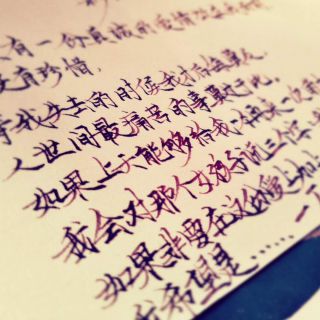 有一份真诚的爱情放在我
没有珍惜,
等我失去的时候我才后悔莫及。
人世间最痛苦的事莫过于此。
如果上天能够给我再来一次
我会对那个女孩子说三个字
如果非要在这份爱上加上
我希望是……一万